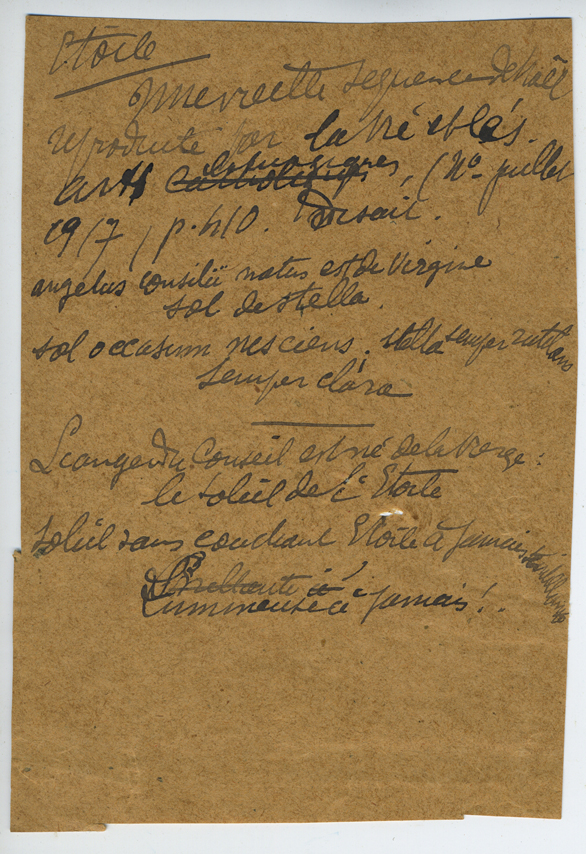 Etoile
Une vieille sequence de Noël
reproduite par la Vie et les
arts liturgiques, (No juillet
1917, p. 410. disait.
angelus consilii natus est de Virgine
sol de stella.
sol occasum nesciens, stella semper rutilans
semper clara
L'ange du Conseil est né de la Vierge:
le soleil de l'Etoile
soleil sans couchant Etoile à jamais
Brillante à
Lumineuse à jamais!..